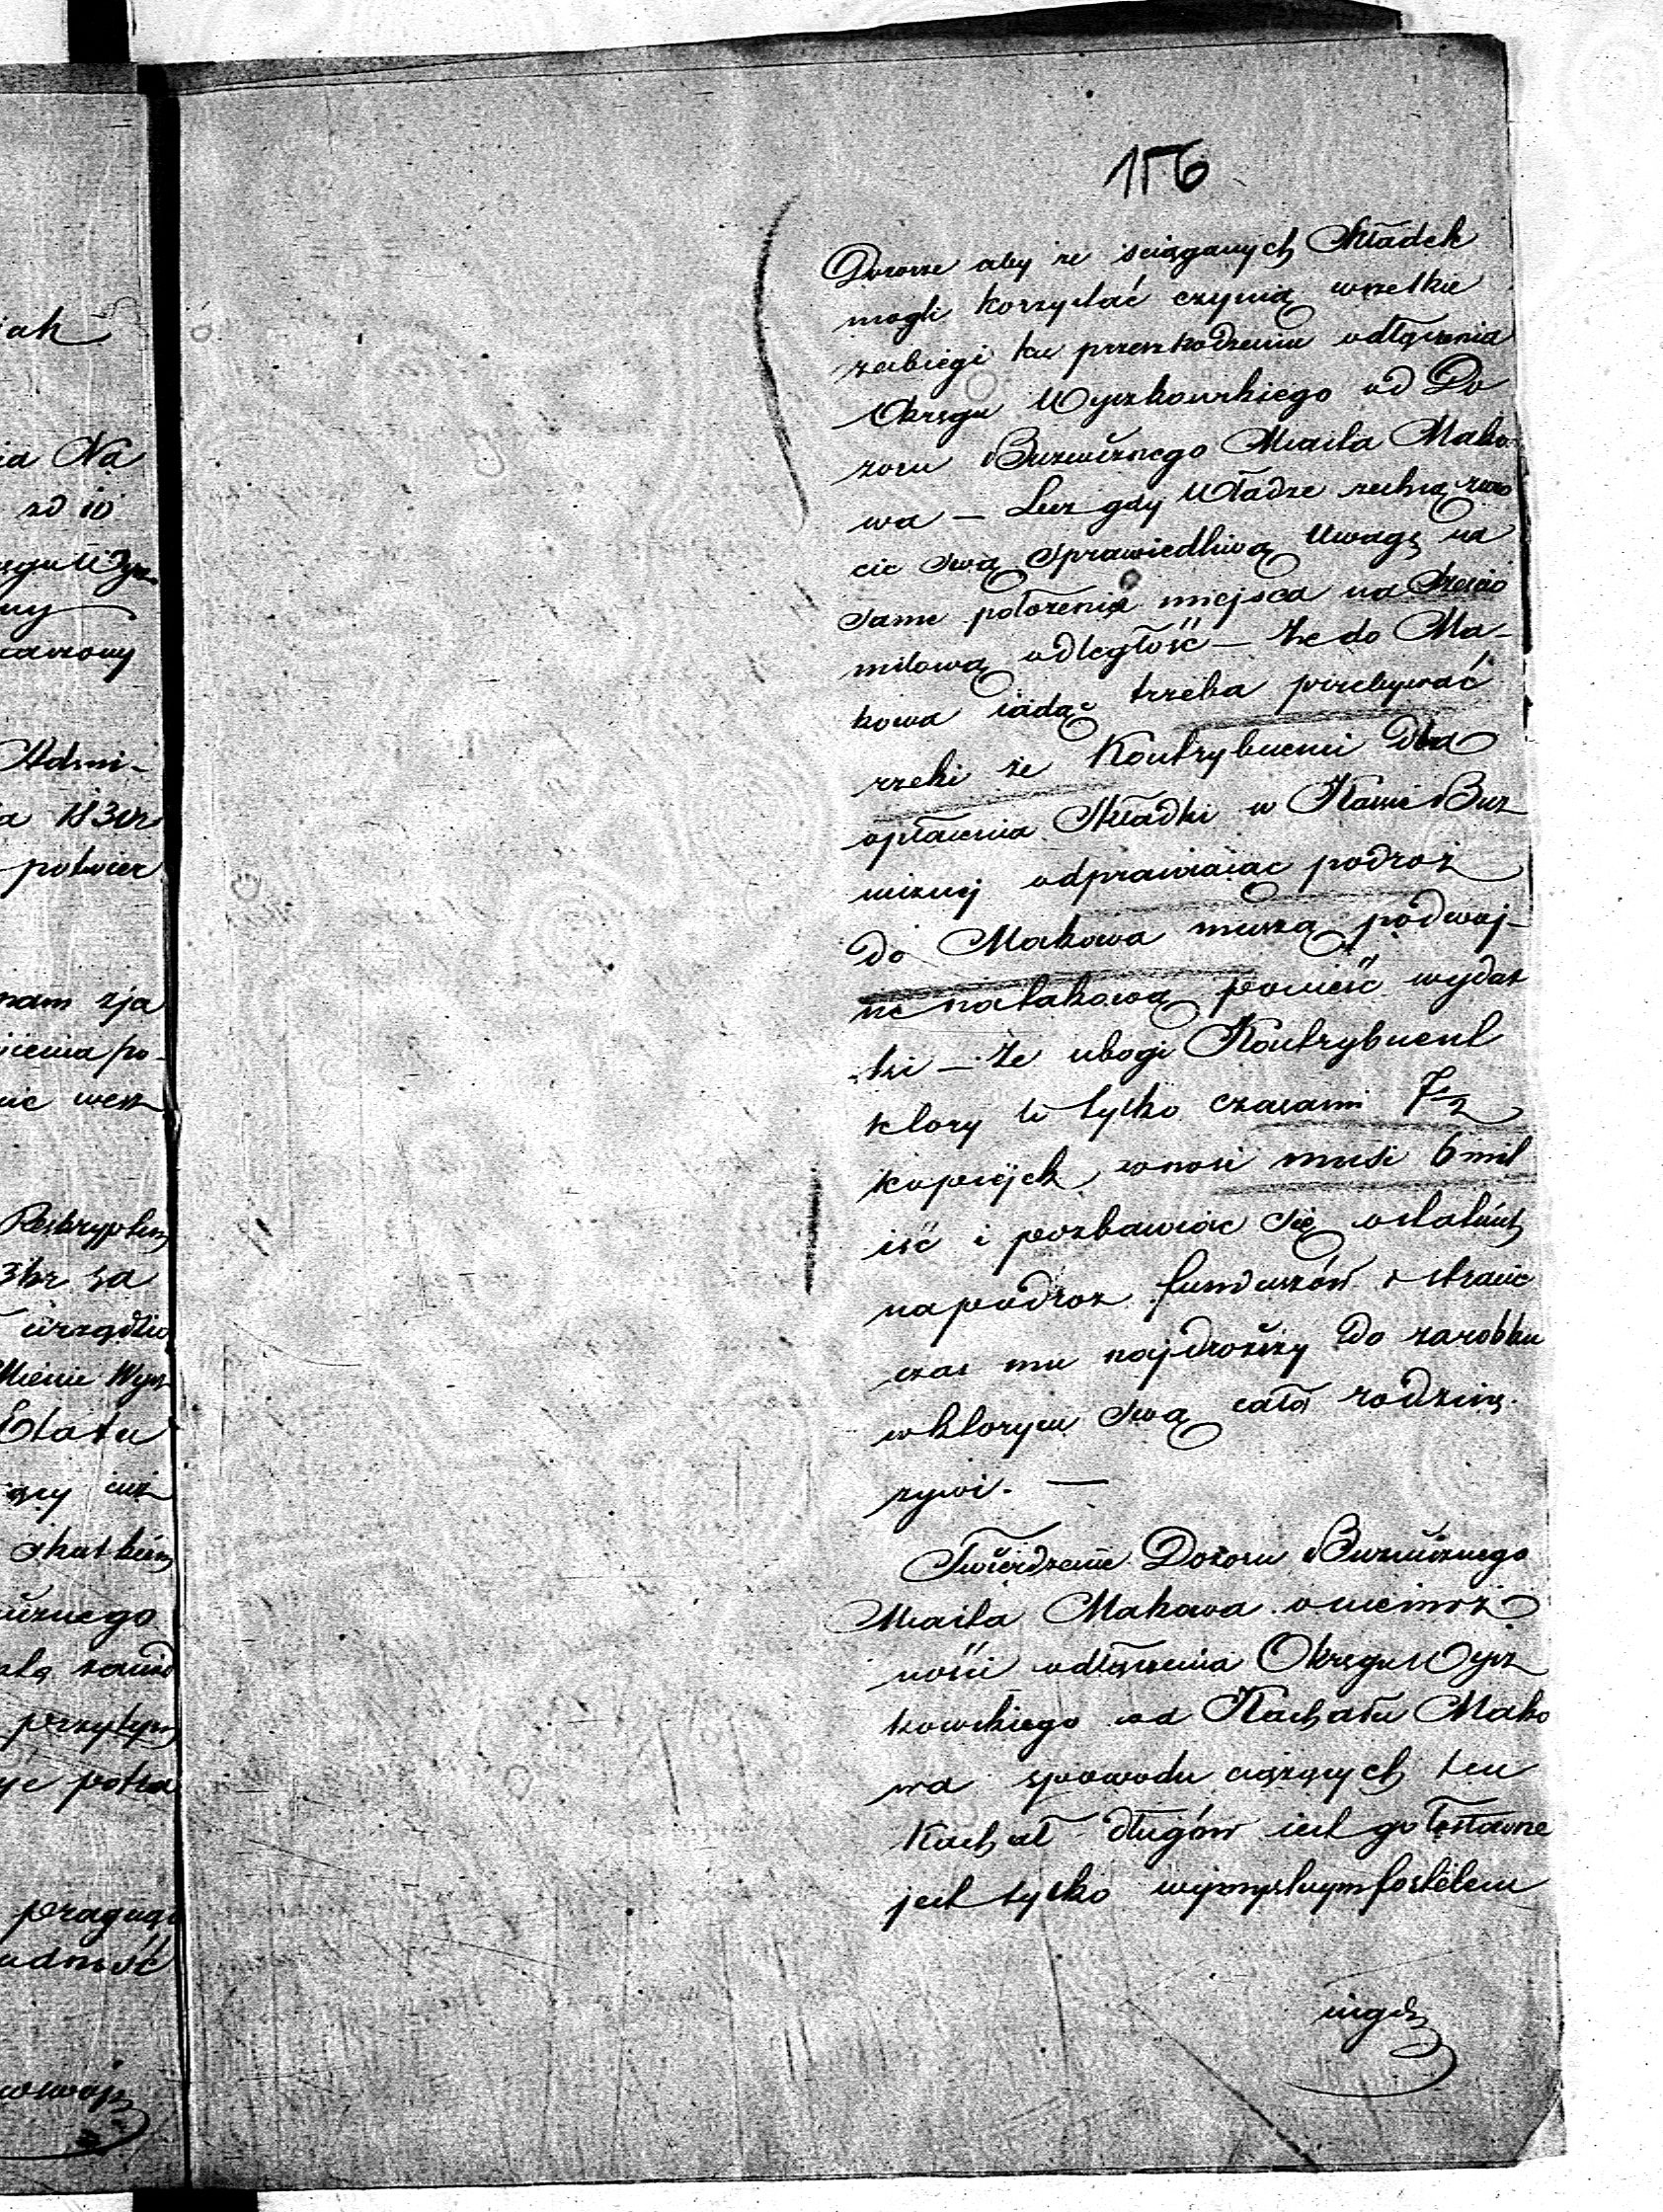 156
Dozorze aby ze sciąganych Składek
mogli korzystać czynią wszelkie
zabiegi ku przeszkodzeniu odłączenia
Okręgu Wyszkowskiego od Do
zoru Bużničznego Miasta Mako
wa — Lecz gdy Władze zechcą zwro
cić swą sprawiedliwą Uwagę na
same położenia miejsca na Sześcio
milową odległość — że do Ma-
kowa iadąc trzeba przebywać
rzeki że Kontrybuenci dla
opłacenia Składki w Kassie Buz
nicznej odprawiaiąc podroż
do Makowa muszą podwoj-
ne natakową ponieść wydat
ki — że ubogi Kontrybuent
ktory tu tylko czasami 7½
kopiejek wnosi musi 6 mil
iść i pozbawiac się ostatnich
na podroz funduszów i stracic
czas mu najdroższy do zarobku
w ktorym swą całą rodzinę
zywi. —
Twierdzenie Dozoru Buznicznego
Miasta Makowa o niemoż
ności odłączenia Okręgu Wysz
kowskiego od Kachału Mako
wa spowodu ciążących ten
Kachał długów iest gołosłowne
jest tylko wymyslnym fortelem
nigdy
iak
ia Na
ny
Admi-
a 1830r
potwier
nam zja
po-
Reskryptem
za
urządze
Etatu
skutkiem
przytym
pragną